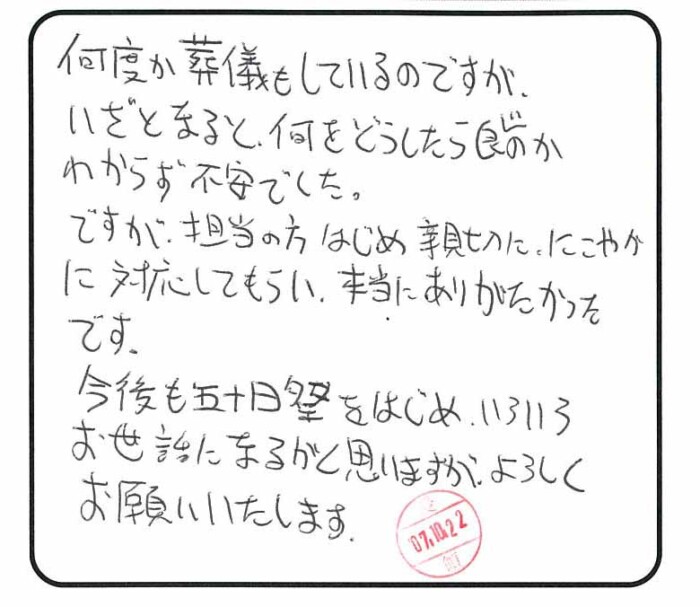 何度か葬儀もしているのですが、
いざとなると、何をどうしたら良いのか
わからず不安でした。
ですが、担当の方はじめ親切に、にこやか
に対応してもらい、本当にありがたかった
です。
今後も五十日祭をはじめ、いろいろ
お世話になるかと思いますが、よろしく
お願いいたします。
'07.10.22